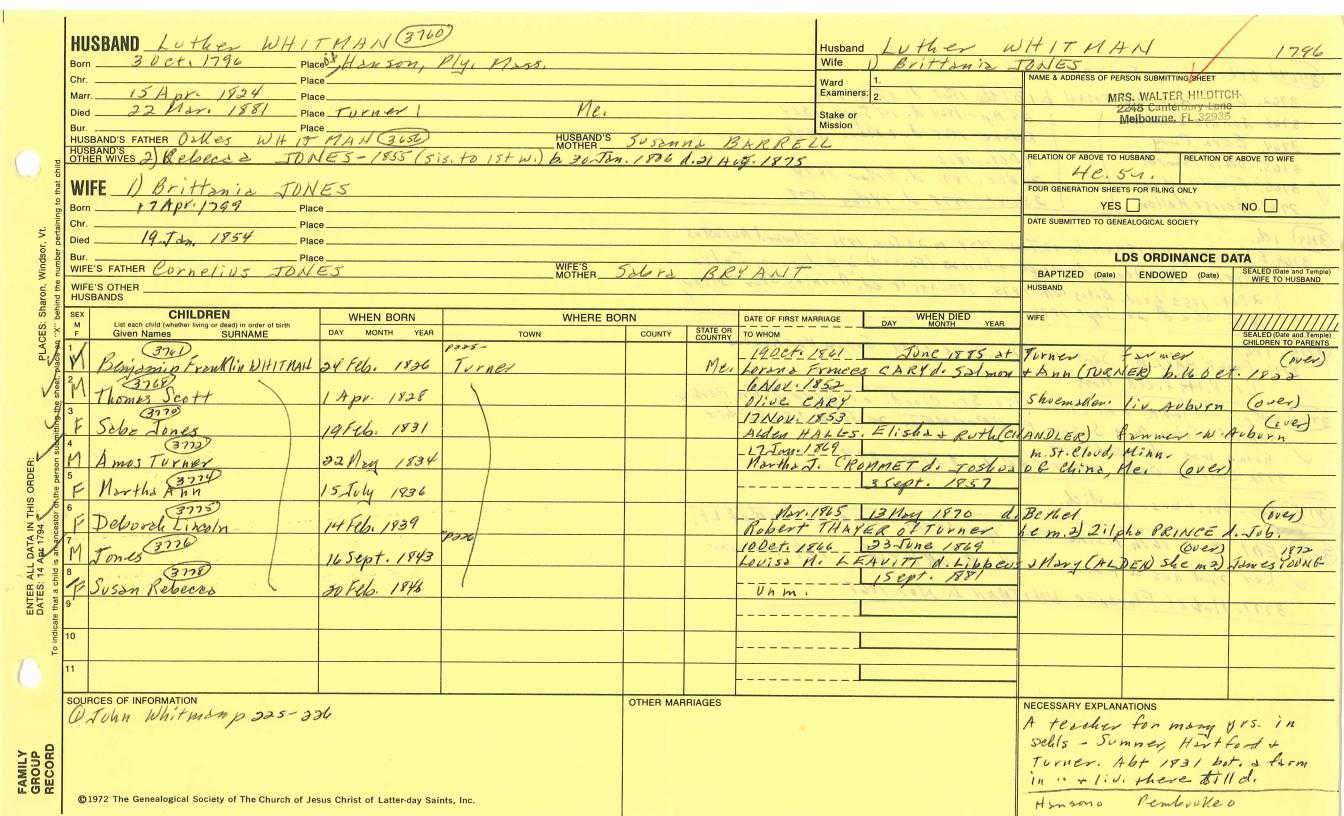 HUSBAND Luther WHITMAN (3760)
Born 3 Oct. 1796 Place of Hanson, Ply. Mass.
Chr. Place
Marr. 15 Apr. 1824 Place
Died 22 Mar. 1881 Place Turner Me.
Bur. Place
HUSBAND'S FATHER Oakes WHITMAN (3656) HUSBAND'S MOTHER Susanna BARRELL
HUSBAND'S OTHER WIVES 2) Rebecca JONES - 1855 (sis. to 1st w.) b. 30 Jan. 1806 d. 21 Aug. 1875
WIFE 1) Brittania JONES
Born 17 Apr. 1799 Place
Chr. Place
Died 19 Jan. 1854 Place
Bur. Place
WIFE'S FATHER Cornelius JONES WIFE'S MOTHER Sabra BRYANT
WIFE'S OTHER HUSBANDS
Husband Luther WHITMAN 1796
Wife 1) Brittania JONES
Ward Examiners: 1. 2.
Stake or Mission
NAME & ADDRESS OF PERSON SUBMITTING SHEET
MRS. WALTER HILDITCH
2248 Canterbury Lane
Melbourne, FL 32935
RELATION OF ABOVE TO HUSBAND RELATION OF ABOVE TO WIFE
4c. 5r.
FOUR GENERATION SHEETS FOR FILING ONLY
YES NO
DATE SUBMITTED TO GENEALOGICAL SOCIETY
LDS ORDINANCE DATA
BAPTIZED (Date) ENDOWED (Date) SEALED (Date and Temple) WIFE TO HUSBAND
HUSBAND
WIFE
SEALED (Date and Temple) CHILDREN TO PARENTS
SEX M F CHILDREN WHEN BORN WHERE BORN DATE OF FIRST MARRIAGE WHEN DIED
List each child (whether living or dead) in order of birth
Given Names SURNAME DAY MONTH YEAR TOWN COUNTY STATE OR COUNTRY TO WHOM DAY MONTH YEAR
1 (3761) p225- 19 Oct. 1861 June 1885 at Turner farmer (over)
M Benjamin Franklin WHITMAN 24 Feb. 1826 Turner Me. Lorana Frances CARY d. Salmon + Ann (TURNER) b. 16 Oct. 1822
2 (3768) 6 Nov. 1852
M Thomas Scott 1 Apr. 1828 Olive CARY Shoemaker. liv. Auburn (over)
3 (3770) 13 Nov. 1853 (over)
F Saba Jones 19 Feb. 1831 Alden HALL s. Elisha + Ruth (CHANDLER) farmer - W. Auburn
4 (3772) 17 Jan. 1869 m. St. Cloud, Minn.
M Amos Turner 22 May 1834 Martha J. CROMMET d. Joshua of China, Me. (over)
5 (3774) 3 Sept. 1857
F Martha Ann 15 July 1836
6 (3775) Mar. 1865 13 May 1870 d. Bethel (over)
F Deborah Lincoln 14 Feb. 1839 p226 Robert THAYER of Turner he m. 2) Zilpha PRINCE d. Job.
7 (3776) 10 Oct. 1866 23 June 1869 (over) 1872
M Jones 16 Sept. 1843 Louisa M. LEAVITT d. Libbeus + Mary (ALDEN) she m 2) James YOUNG
8 (3778) 1 Sept. 1881
F Susan Rebecca 20 Feb. 1846 Unm.
9
10
11
SOURCES OF INFORMATION
① John Whitman p 225-226
OTHER MARRIAGES
NECESSARY EXPLANATIONS
A teacher for many yrs. in
schls - Sumner, Hartford +
Turner. Abt 1831 bot. a farm
in " + liv. there till d.
Hanson Pembroke
©1972 The Genealogical Society of The Church of Jesus Christ of Latter-day Saints, Inc.
FAMILY GROUP RECORD
ENTER ALL DATA IN THIS ORDER:
DATES: 14 Apr 1794 PLACES: Sharon, Windsor, Vt.
To indicate that a child is an ancestor of the person submitting the sheet, place an "X" behind the number pertaining to that child.